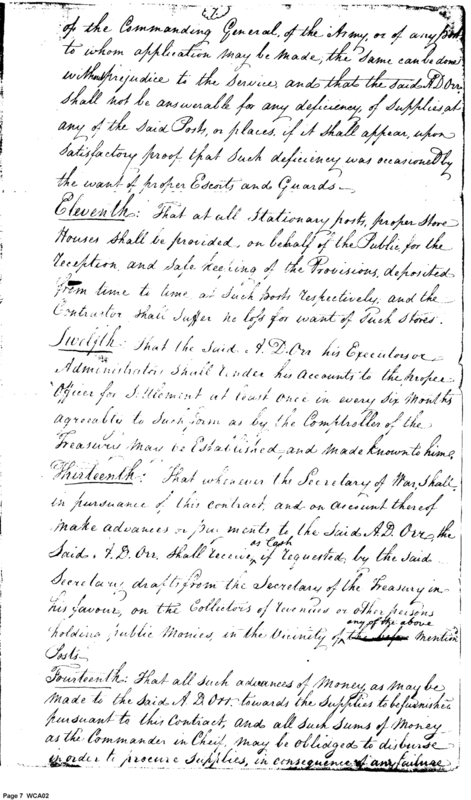 7
of the Commanding General, of the Army, or of any post
to whom application may be made, the same can be done
without prejudice to the service, and that the said A D Orr
shall not be answerable for any deficiency, of supplies at
any of the said Posts, or places, if it shall appear, upon
satisfactory proof that such deficiency was occasioned by
the want of proper Escorts and Guards —
Eleventh: That at all Stationary posts, proper store
Houses shall be provided, on behalf of the Public, for the
reception and safe keeping of the Provisions, deposited
from time to time, at such posts respectively, and the
Contractor shall suffer no loss for want of Such Stores.
Twelfth: That the said A. D. Orr his Executors or
Administrators shall render his accounts to the proper
Officer for Settlement at least once in every Six Months
agreeably to such form as by the Comptroller of the
Treasury may be Established, and made known to him.
Thirteenth: That whenever the Secretary of War, shall
in pursuance of this contract, and on account thereof
make advances or payments to the Said A. D. Orr, the
Said A. D. Orr shall receive, as Cash if requested by the said
Secretary drafts from the Secretary of the Treasury in
his favour, on the Collectors of Revenues or other persons
holding public Monies, in the Vicinity of any of the above mention
Posts
Fourteenth: That all such advances of Money, as may be
made to the Said A D Orr, towards the Supplies to be furnished
pursuant to this Contract, and all such sums of Money
as the Commander in Cheif, may be oblidged to disburse
in order to procure supplies, in consequence of any failure
Page 7 WCA02